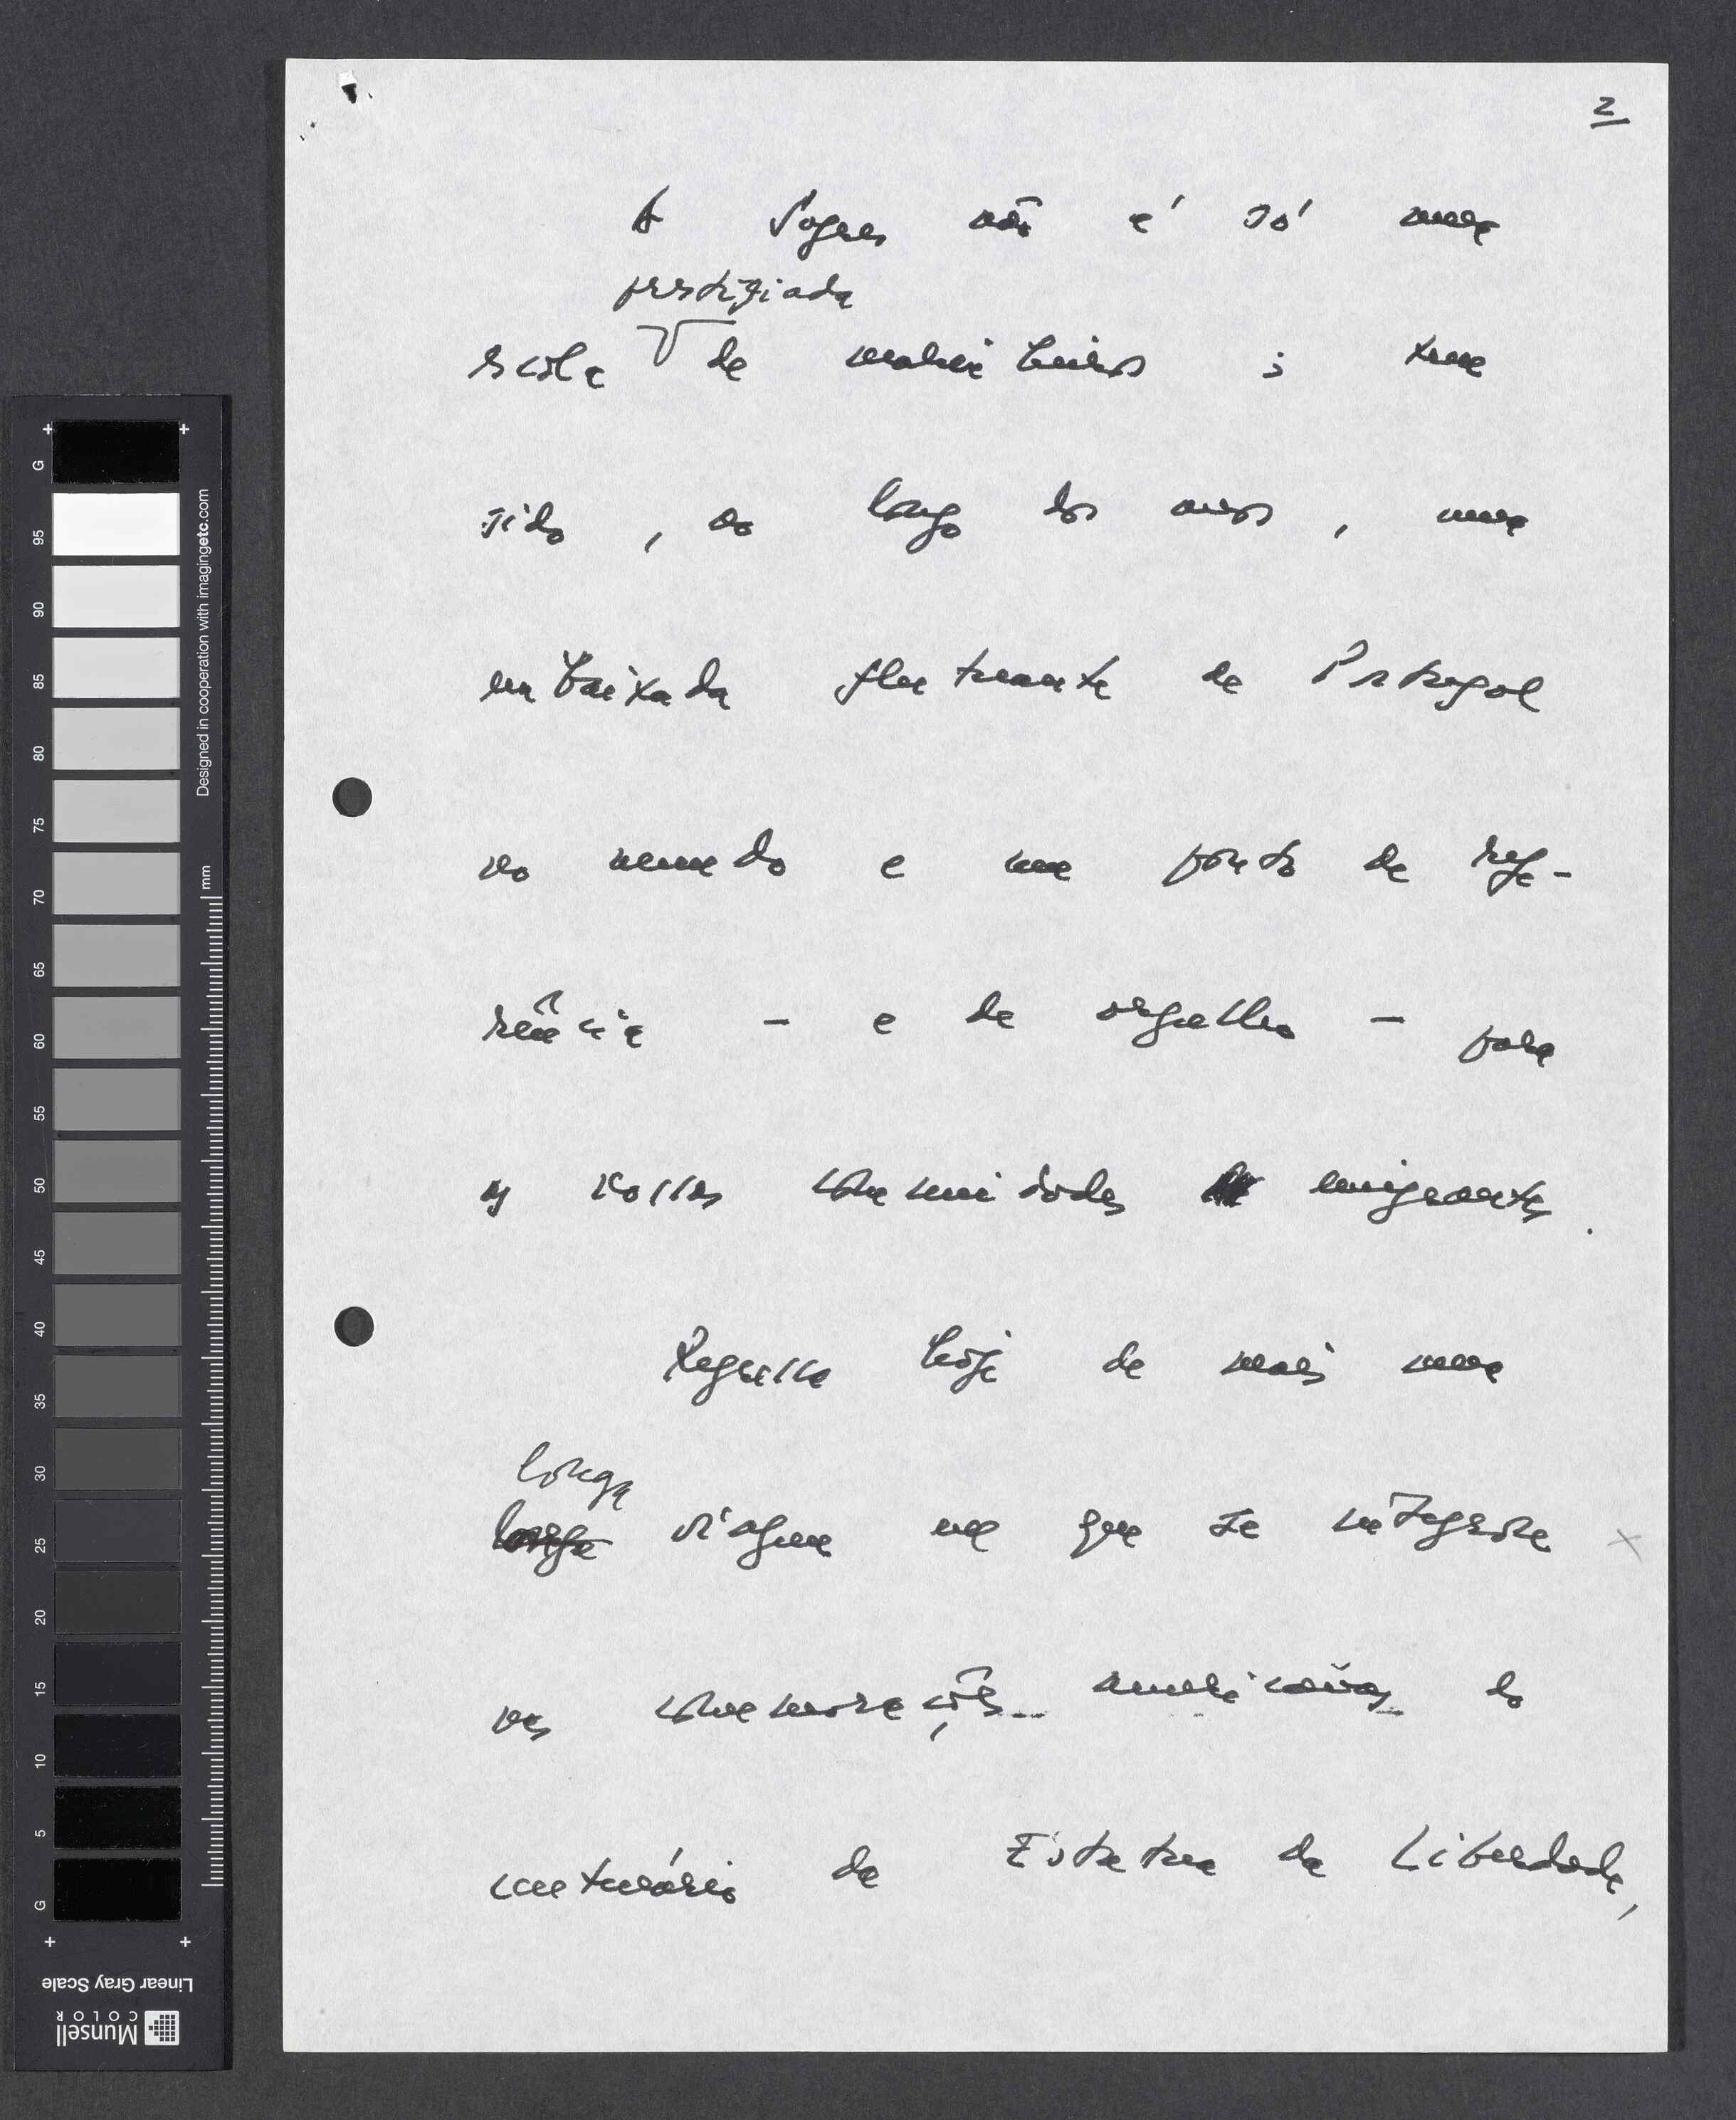 2
A Sagres não é só uma
prestigiada
escola de marinheiros ; tem
sido , ao longo dos anos , uma
embaixada flutuante de Portugal
no mundo e um ponto de refe-
rência - e de orgulho - para
as nossas comunidades emigrantes .
Regressa hoje de mais uma
longa
larga viagem em que se integrou x
nas comemorações americanas do
centenário da Estátua da Liberdade,
G
95
90
85
80
75
70
65
60
55
50
45
40
35
30
25
20
15
10
5
G
Designed in cooperation with imagingetc.com
mm
Linear Gray Scale
Munsell
COLOR